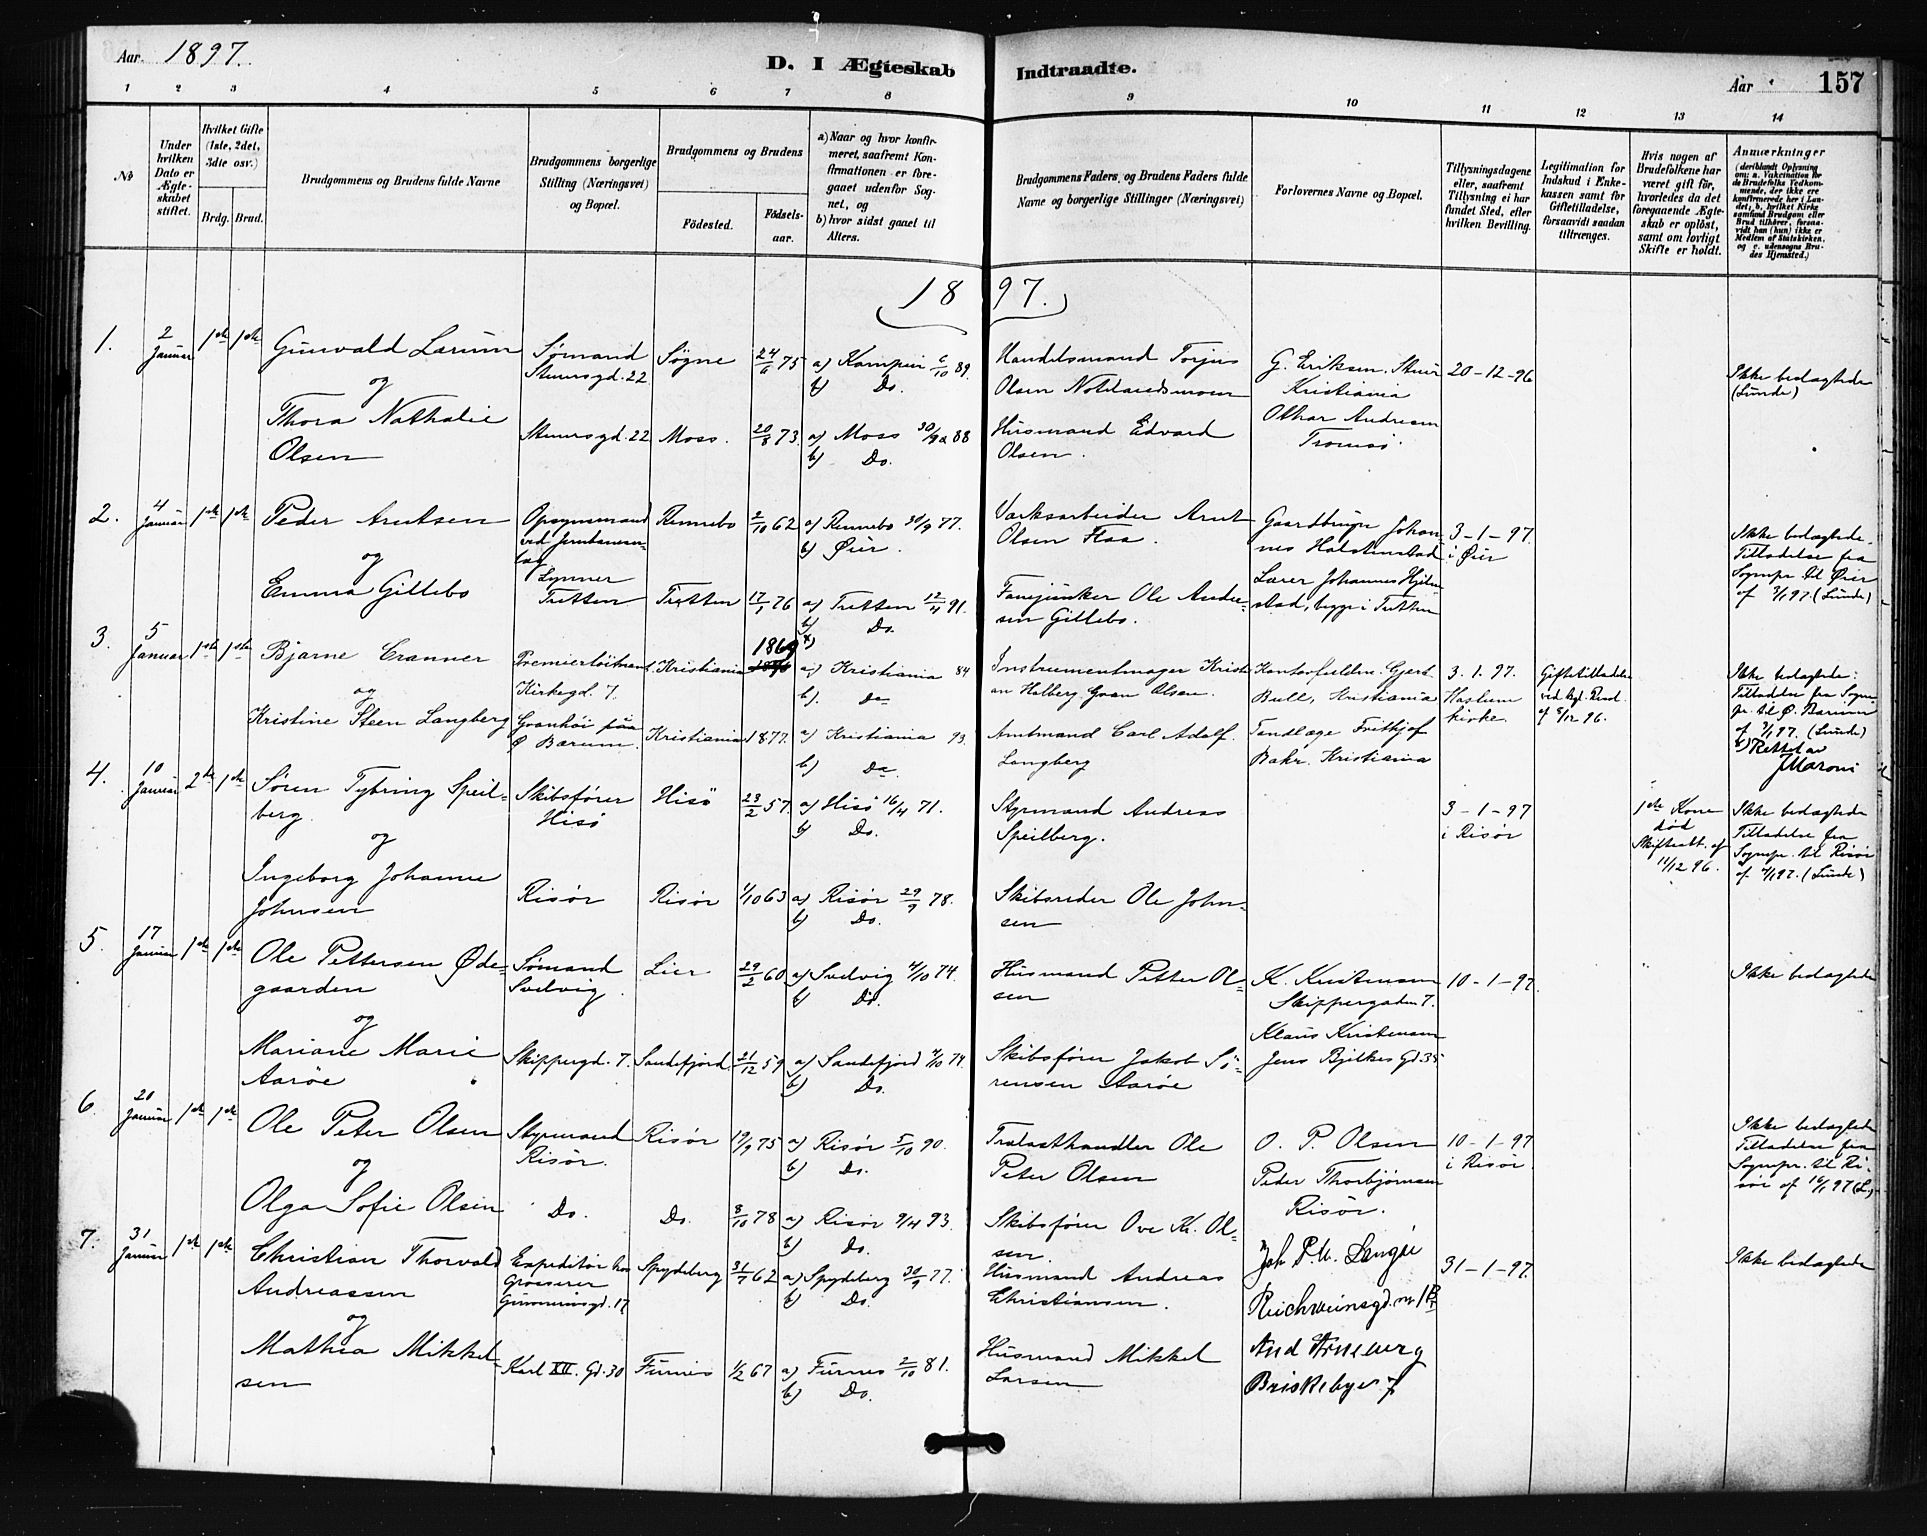 Aar 1897.
D. I Ægteskab Indtraadte.
Aar
157
1 2 3 4 5 6 7 8 9 10 11 12 13 14
No
Under hvilken Dato er Ægteskabet stiftet.
Hvilket Gifte (1ste, 2det, 3die osv.)
Brdg. Brud.
Brudgommens og Brudens fulde Navne
Brudgommens borgerlige Stilling (Næringsvei) og Bopæl.
Brudgommens og Brudens
Fødested. Fødselsaar.
a) Naar og hvor konfirmeret, saafremt Konfirmationen er foregaaet udenfor Sognet, og
b) hvor sidst gaaet til Alters.
Brudgommens Faders, og Brudens Faders fulde Navne og borgerlige Stillinger (Næringsvei)
Forlovernes Navne og Bopæl.
Tillysningsdagene eller, saafremt Tillysning ei har fundet Sted, efter hvilken Bevilling.
Legitimation for Indskud i Enkekassen samt for Giftetilladelse, forsaavidt saadan tiltrænges.
Hvis nogen af Brudefolkene har været gift før, hvorledes da det foregaaende Ægteskab er opløst, samt om lovligt Skifte er holdt.
Anmærkninger
(deriblandt Oplysning om: a. Vakcination for de Brudefolks Vedkommende, der ikke ere konfirmerede her i Landet; b. hvilket Kirkesamfund Brudgom eller Brud tilhører, forsaavidt han (hun) ikke er Medlem af Statskirken, og c. udensogns Brudes Hjemsted.)
1897.
1. 2 Januar 1ste 1ste Gunvald Larum Sømand Steners gd. 22 Søgne 24/6 75 a) Kampen 6/10 89. b) Do. Handelsmand Torjus Olsen G. Eriksen, Kristiania 20-12-96 Ikke bedagtede (Lunde)
og
Thora Nathalie Olsen Steners gd. 22 Moss. 20/8 73. a) Moss 30/9 88 b) Do. Husmand Edvard Olsen. Othar Andresen Tromsø.
2. 4 Januar 1ste 1ste Peder Arntsen Opsynsmand ved Rennebo 2/10 62 a) Rennebo 30/9 77. b) Øier. Varksarbeider Arnt Olsen Flaa. Gaardbruger Johannes 3-1-97. i Øier Ikke bedagtede. Tilladelse fra Sognepr. til Øier af 2/1 97. (Lunde)
og
Emma Gillebo Tretten Tretten 17/1 76 a) Tretten 12/4 91. b) Do. Fanejunker Ole Andersen Gillebo. Lærer Johannes begge i Tretten
3. 5 Januar 1ste 1ste Bjarne Cranner Premierløitnant Kirkegd. 7. Kristiania 1869 x) a) Kristiania 84 b). do Instrumentmager Kristian Holberg Gran Olsen. Kontorfuldm. Gjert Bull, Kristiania 3.1.97. Haslum kirke. Giftetilladelse af 8/12 96. Ikke bedagtede: Tilladelse fra Sognepr. til Ø. Bærum af 3/1 97. (Lunde)
x) Rettet av
og
Kristine Steen Langberg Granhöi paa Ø Bærum. Kristiania 1877. a) Kristiania 93. b) do. Amtmand Carl Adolf Langberg Tandlæge Frithjof Kristiania
4. 10 Januar 2det 1ste Søren Tybring Speilberg Skibsfører Hisø Hisö 23/2 57. a) Hisö 16/4 71. b) Do. Styrmand Andreas Speilberg. 3-1-97 i Risør 1ste Kone død Skifteatt. af 11/12 96. Ikke bedagtede Tilladelse fra Sognepr. til Risør af 4/1 97. (Lunde)
og
Ingeborg Johanne Johnsen Risør Risør 1/10 63 a) Risør 29/9 78. b) Do. Skibsreder Ole Johnsen
5. 17 Januar 1ste 1ste Ole Pettersen Ødegaarden Sømand Svelvig Lier 29/2 60 a) Svelvig 4/10 74. b) Do. Husmand Petter Olsen K. Kristensen Skippergaden 7. 10-1-97. Ikke bedagtede
og
Mariane Marie Aarøe Skippergd. 7. Sandefjord 21/12 59 a) Sandefjord 4/10 74. b) Do. Skibsfører Jakob Sörensen Aarøe Klaus Kristensen Jens Bjelkes Gd. 35
6. 20 Januar 1ste 1ste Ole Peter Olsen Styrmand Risør. Risør 19/9 75 a) Risør 5/10 90. b) Do. Trælasthandler Ole Peter Olsen O. P. Olsen 10-1-97 i Risør. Ikke bedagtede Tilladelse fra Sognepr. til Risör af 16/1 97 (L.)
og
Olga Sofie Olsen Do. Do. 8/10 78 a) Risør 9/4 93. b) Do. Skibsfører Ove Kr. Olsen Peder Thorbjörnsen Risör.
7. 31 Januar 1ste 1ste Christian Thorvald Andreassen Expeditør hos Grosserer Spydeberg 31/7 62 a) Spydeberg 30/9 77. b) Do. Husmand Andreas Christiansen. Joh P. M. Reichweinsgd. 31-1-97. Ikke bedagtede
og
Mathea Mikkelsen Karl XII. Gd. 30 Furnes 1/2 67 a) Furnes 2/10 81. b) Do. Husmand Mikkel Larsen Briskebyv 7